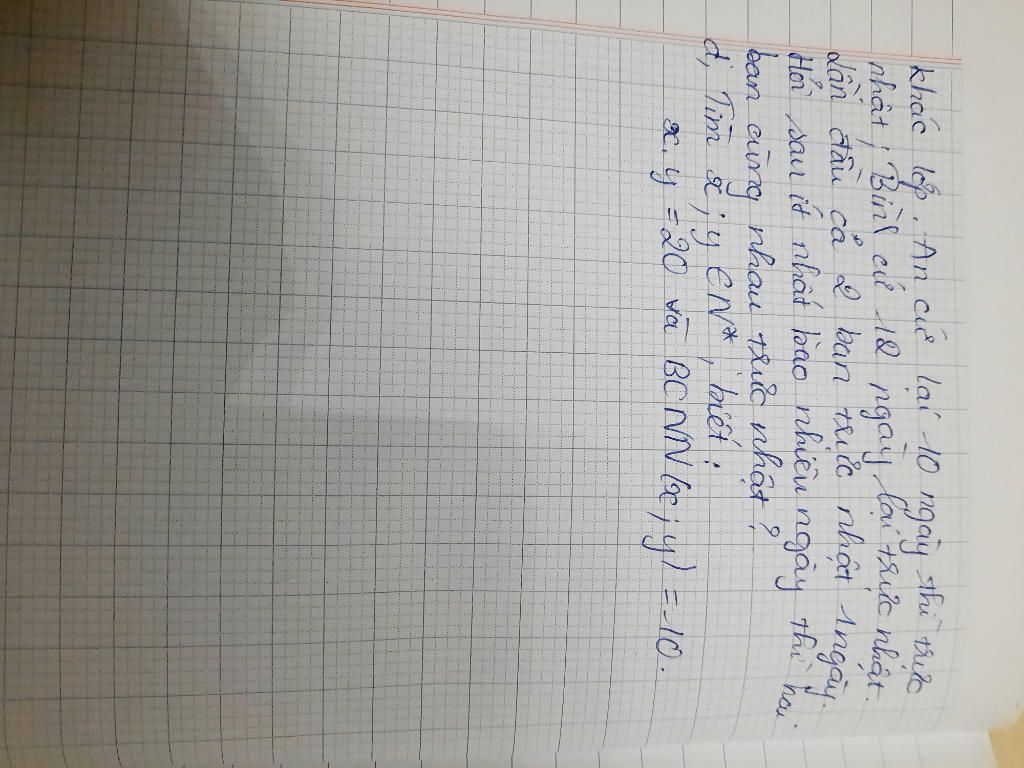 khác lớp. An cứ lại 10 ngày thì trực
nhật, Bình cứ 12 ngày lại trực nhật.
Lần đầu cả 2 bạn trực nhật 1 ngày.
Hỏi sau ít nhất bao nhiêu ngày thì hai
bạn cùng nhau trực nhật?
d, Tìm x; y ∈ N*, biết:
x.y = 20 và BCNN(x; y) = 10.